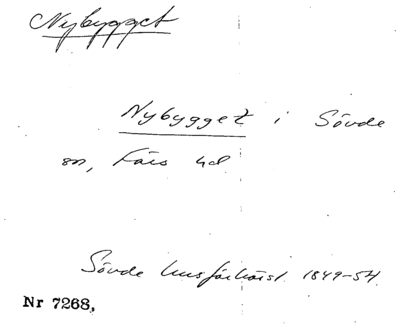 Nybygget
Nybygget i Sövde
sn, Färs hd
Sövde husförhörsl. 1849-54.
Nr 7268.